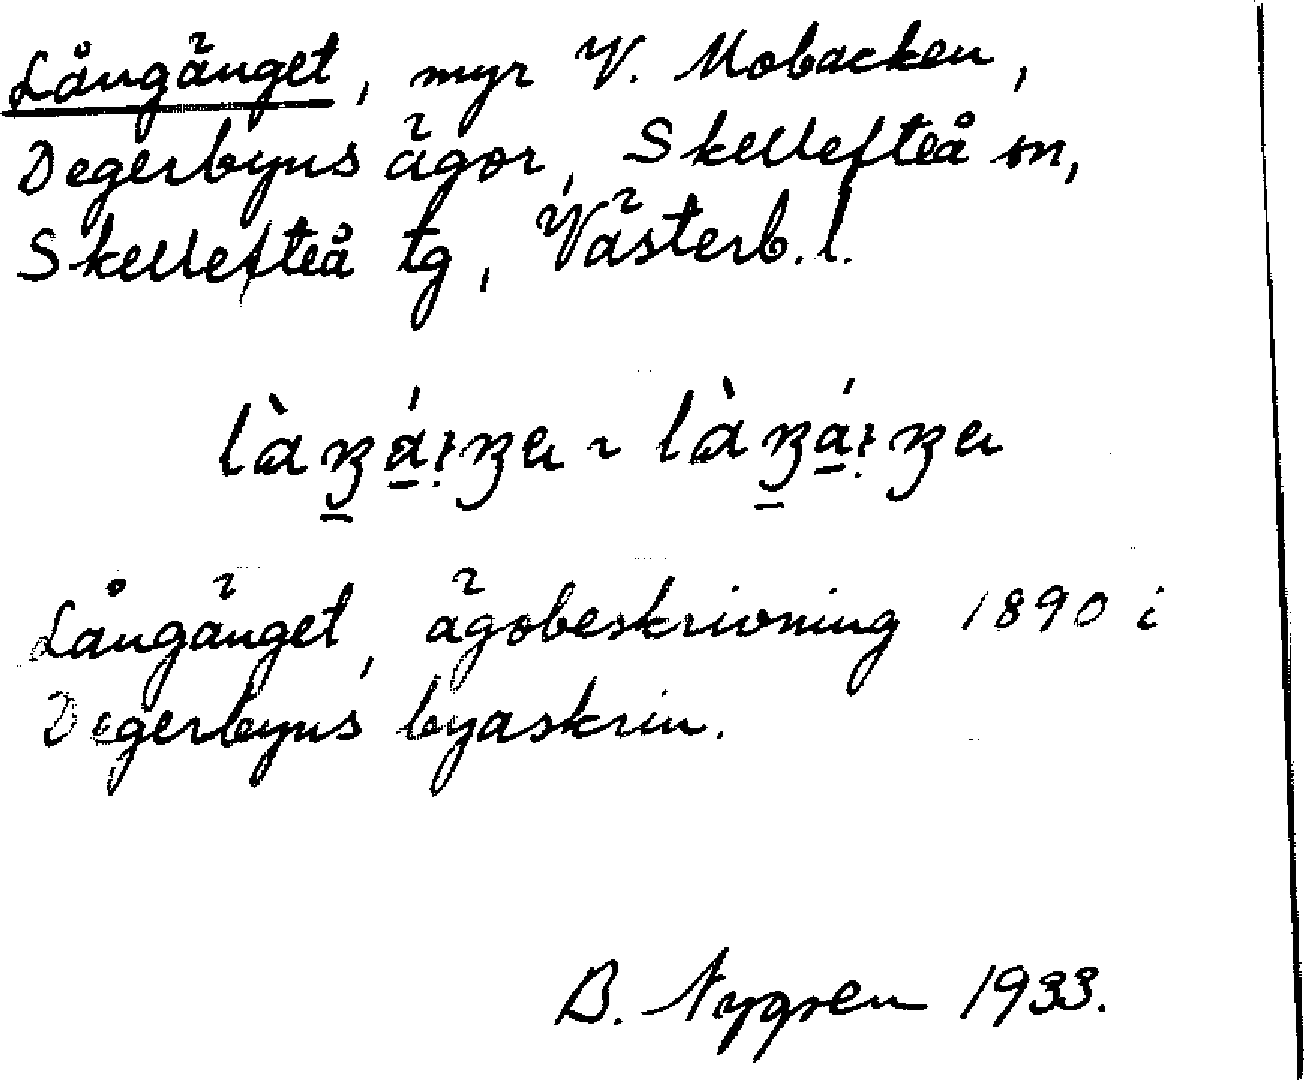 Långänget, myr V. Mobacken,
Degerbyns ägor, Skellefteå sn,
Skellefteå tg, Västerb. l.
Långänget, ägobeskrivning 1890 i
Degerbyns byaskrin.
B. Nygren 1933.